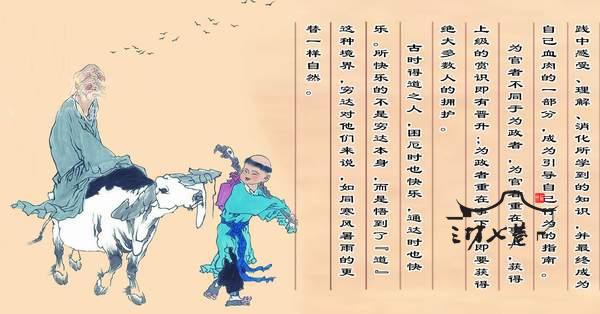 践中感受、理解、消化所学到的知识，并最终成为
自己血肉的一部分，成为引导自己行为的指南。
为官者不同于为政者，为官者重在，获得
上级的赏识即有晋升；为政者重在下，即要获得
绝大多数人的拥护。
古时得道之人，困厄时也快乐，通达时也快
乐。所快乐的不是穷达本身，而是悟到了『道』
这种境界，穷达对他们来说，如同寒风暑雨的更
替一样自然。